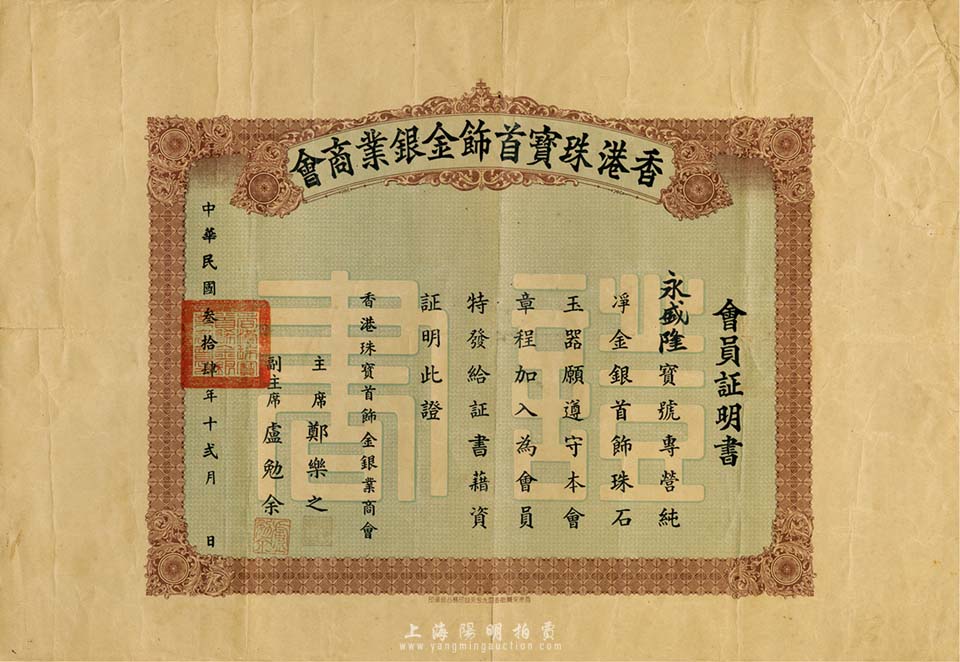 香港珠寶首飾金銀業商會
會員証明書
永盛隆寶號專營純
淨金銀首飾珠石
玉器願遵守本會
章程加入為會員
特發給証書藉資
証明此證
香港珠寶首飾金銀業商會
主席鄭樂之
副主席盧勉余
中華民國叁拾肆年十弍月 日
證書
上海陽明拍賣
www.yangmingauction.com